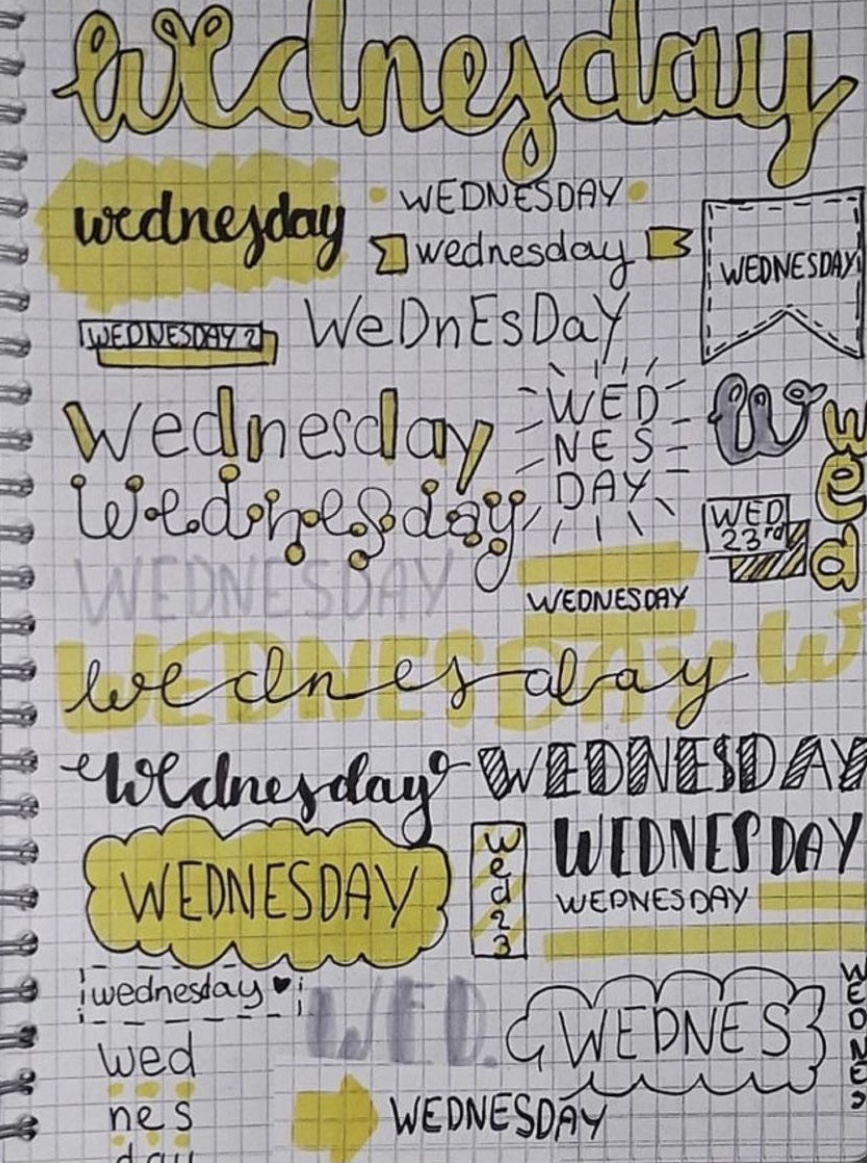 wednesday
wednesday
WEDNESDAY
wednesday
WEDNESDAY
WEDNESDAY 2
WeDnEsDaY
wednesday
WED
NES
DAY
W
wed
wednesday
WED
23rd
WEDNESDAY
WEDNESDAY
WEDNESDAY W
wednesday
wednesday
WEDNESDAY
WEDNESDAY
wed23
WEDNESDAY
WEDNESDAY
wednesday
WED.
WEDNES
WEDNES
wed
nes
day
WEDNESDAY